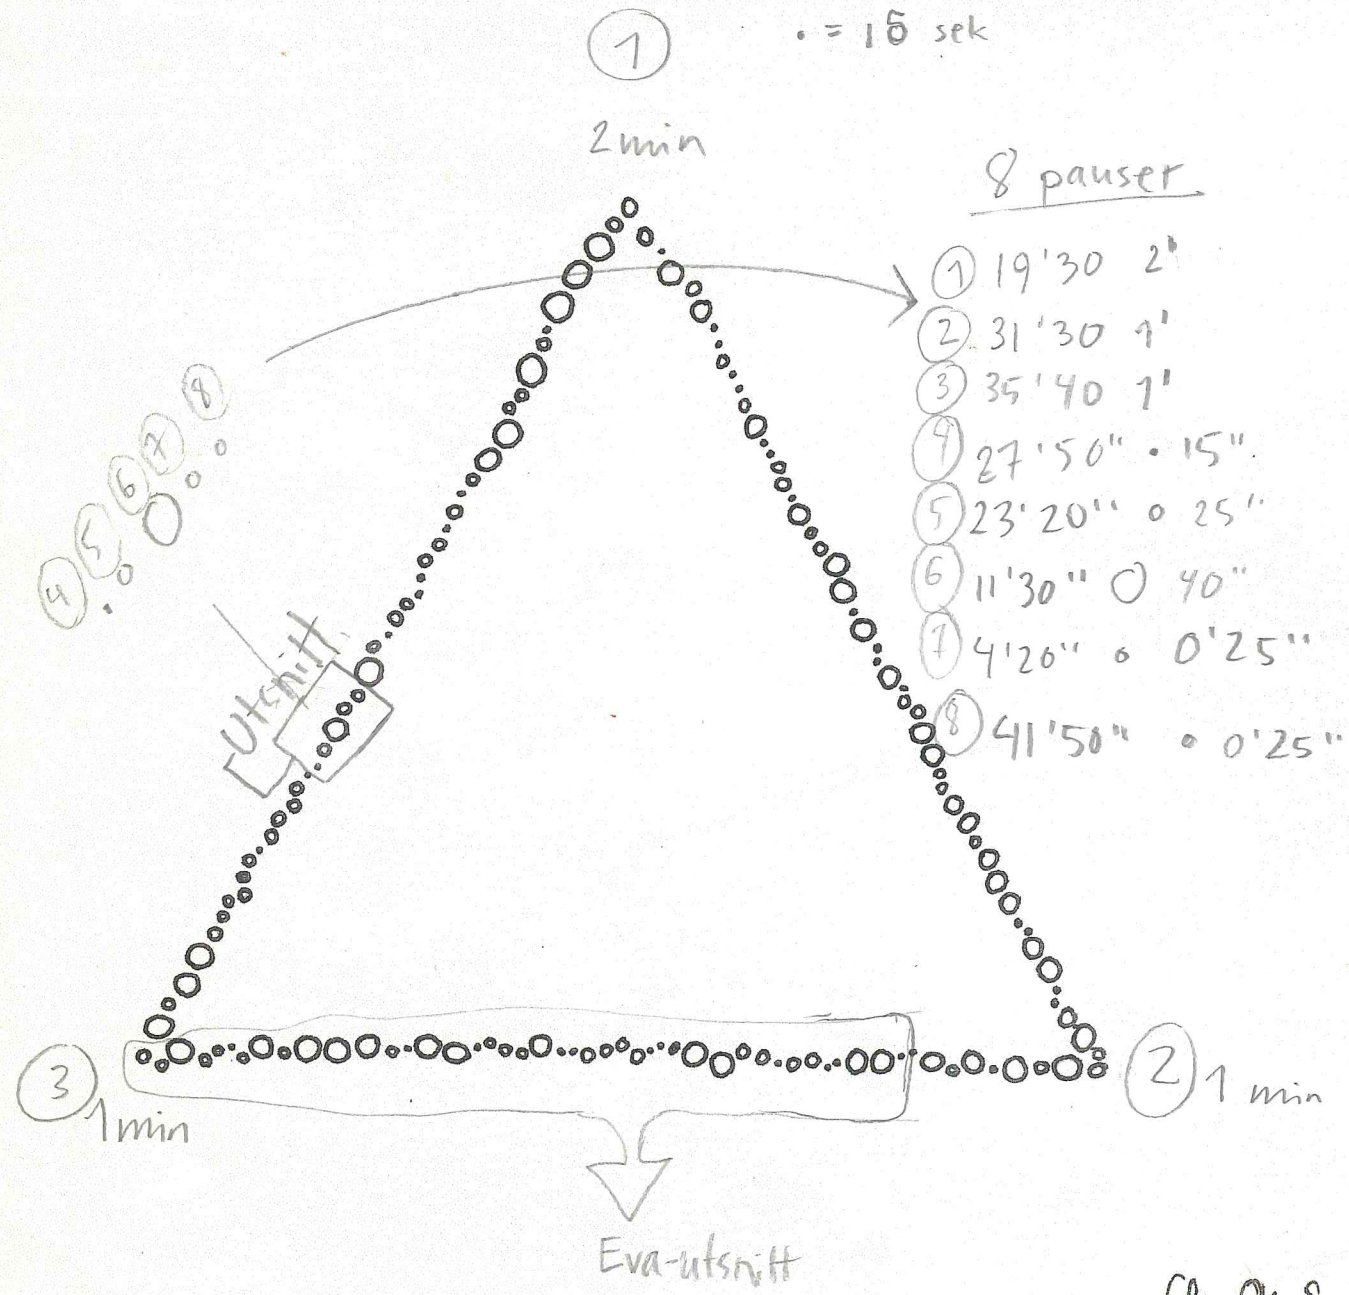 1
• = 15 sek
2 min
8 pauser
1 19'30 2'
2 31'30 1'
3 35'40 1'
4 27'50" • 15"
5 23'20" o 25"
6 11'30" O 40"
7 4'20" o 0'25"
8 41'50" o 0'25"
4 5 6 7 8
Utsnitt
3 1 min
2 1 min
Eva-utsnitt